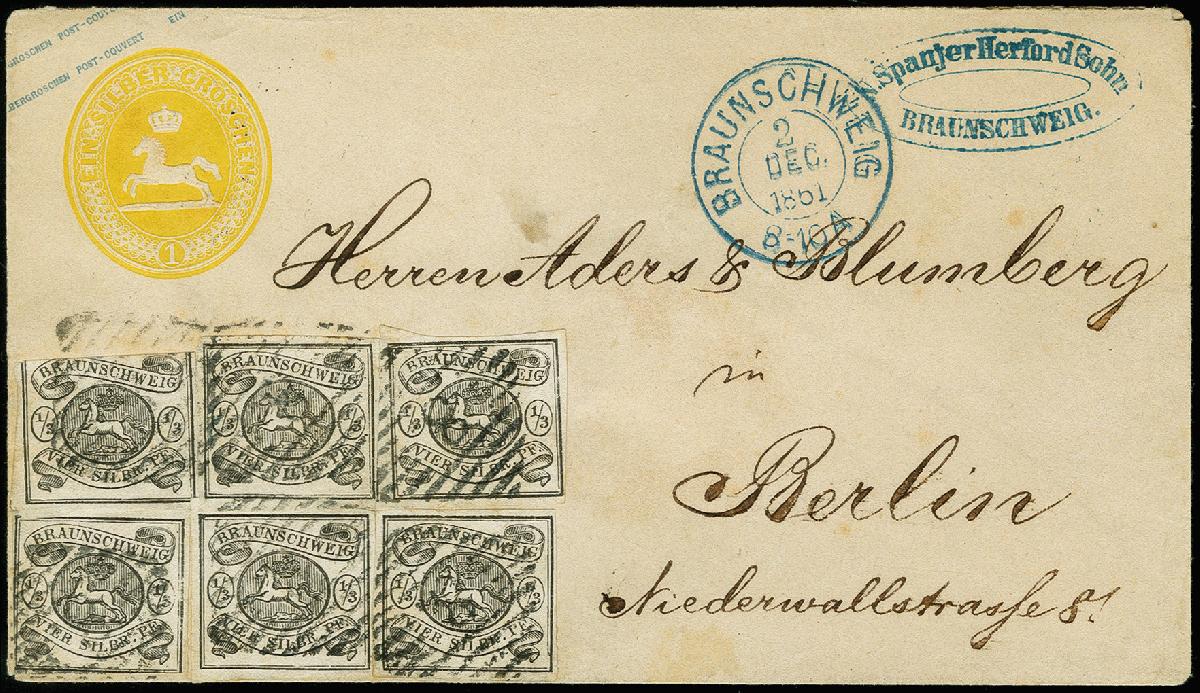 GROSCHEN POST-COUVERT EIN
BERGROSCHEN POST-COUVERT
EIN SILBER GROSCHEN
1
BRAUNSCHWEIG
2
DEC.
1861
8-10 A
Spanjer Herford Sohn
BRAUNSCHWEIG.
Herren Aders & Blumberg
in
Berlin
Niederwallstrasse 8!
BRAUNSCHWEIG
1/3 1/3
VIER SILBR. PF.
BRAUNSCHWEIG
1/3 1/3
VIER SILBR. PF.
BRAUNSCHWEIG
1/3 1/3
VIER SILBR. PF.
BRAUNSCHWEIG
1/3 1/3
VIER SILBR. PF.
BRAUNSCHWEIG
1/3 1/3
VIER SILBR. PF.
BRAUNSCHWEIG
1/3 1/3
VIER SILBR. PF.